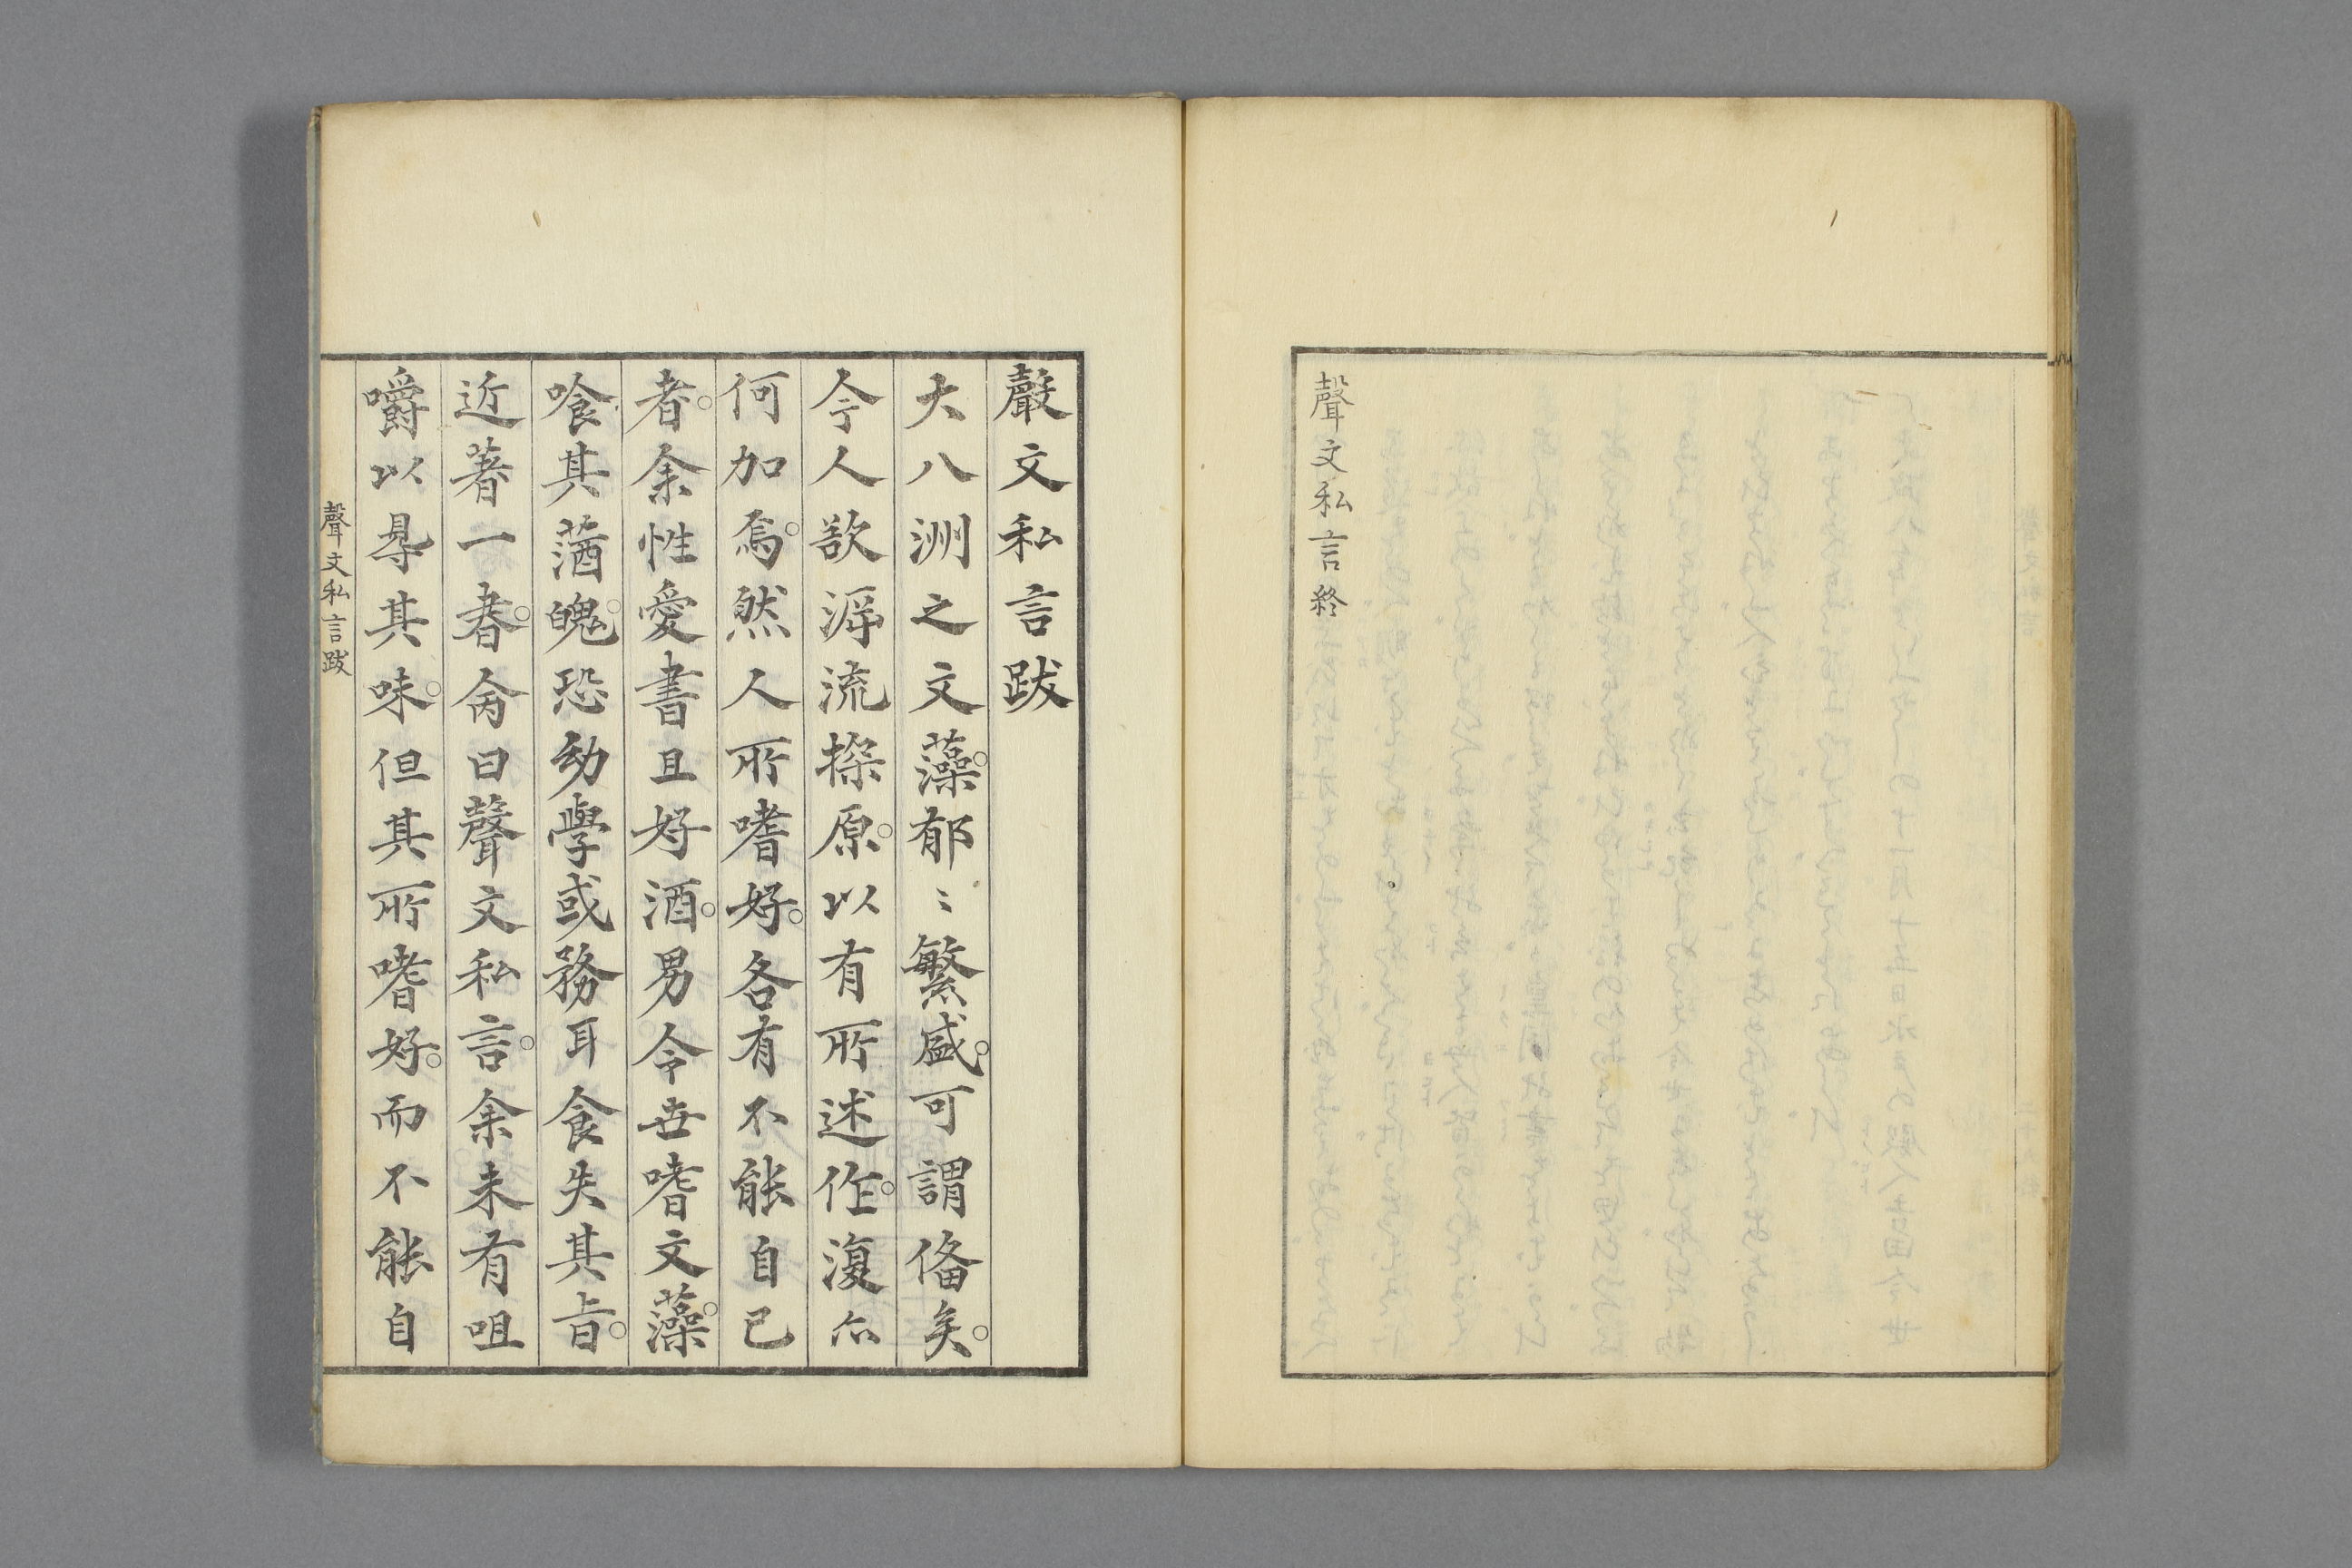 聲文私言終
聲文私言跋
大八洲之文藻。郁〻繁盛。可謂俻矣。
今人欲泝流探原。以有所述作。復亦
何加焉。然人所嗜好。各有不能自已
者。余性愛書且好酒。男今世嗜文藻。
喰其䔰魄。恐幼學或務耳食失其旨。
近著一書。命曰聲文私言。余未有咀
嚼以㝵其味。但其所嗜好。而不能自
聲文私言跋